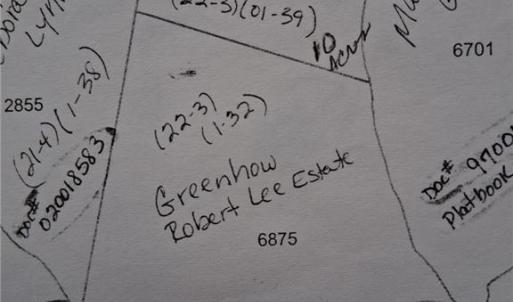 (22-3)(01-39)
10
ACRES
6701
2855
(21-4)(1-38)
Doc#
020018583
(22-3)
(1-32)
Greenhow
Robert Lee Estate
6875
Doc#
Platbook